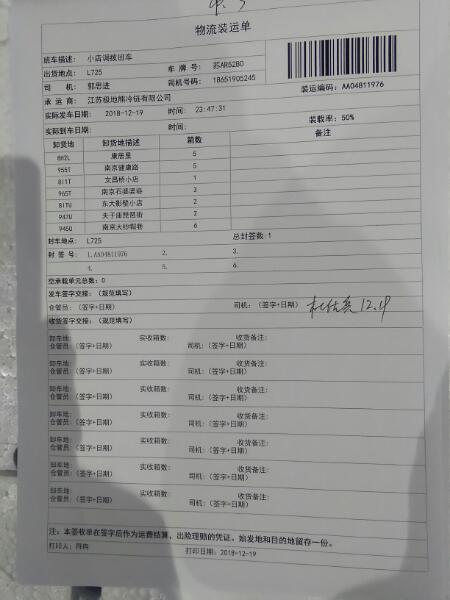 物流装运单
班车描述: 小店调拨班车
出货地点: L725 车 牌 号: 苏AR52B0
司 机: 郭思进 司机号码: 18651905245
承 运 商: 江苏极地熊冷链有限公司 装运编码: AA04811976
实际发车日期: 2018-12-19 时间: 23:47:31
实际到车日期: 时间: 装载率: 50%
卸货地 卸货地描述 箱数 备注
882L 康居里 5
955T 南京健康路 5
811T 文昌桥小店 1
965T 南京石婆婆巷 3
81TU 东大影壁小店 2
947U 夫子庙琵琶街 2
945U 南京大纱帽巷 6
封车地点: L725 总封签数: 1
封 签 号: 1.AA04811976 2. 3.
4. 5. 6.
空承载单元总数: 0
发车签字交接: (规范填写)
仓管员: (签字+日期) 司机: (签字+日期) 12.19
收货签字交接: (规范填写)
卸车地: 实收箱数: 收货备注:
仓管员: (签字+日期) 司机: (签字+日期)
卸车地: 实收箱数: 收货备注:
仓管员: (签字+日期) 司机: (签字+日期)
卸车地: 实收箱数: 收货备注:
仓管员: (签字+日期) 司机: (签字+日期)
卸车地: 实收箱数: 收货备注:
仓管员: (签字+日期) 司机: (签字+日期)
卸车地: 实收箱数: 收货备注:
仓管员: (签字+日期) 司机: (签字+日期)
卸车地: 实收箱数: 收货备注:
仓管员: (签字+日期) 司机: (签字+日期)
卸车地: 实收箱数: 收货备注:
仓管员: (签字+日期) 司机: (签字+日期)
注: 本签收单在签字后作为运费结算, 出险理赔的凭证, 始发地和目的地留存一份。
打印人: 打印日期: 2018-12-19